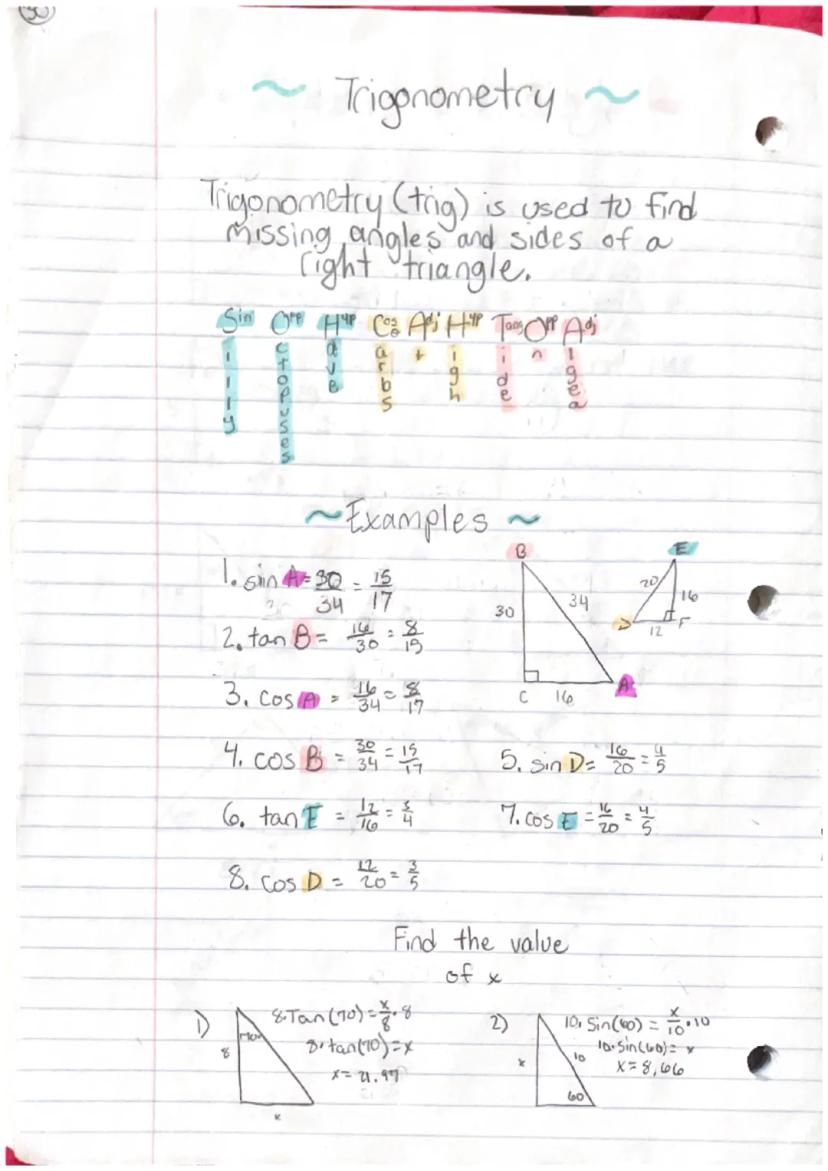 30
~ Trigonometry ~
Trigonometry (trig) is used to find
missing angles and sides of a
right triangle.
Sin Opp Hyp Cos Adj Hyp Tang Opp Adj
Silly Octopuses Have Carbs At High Tide On Algea
~ Examples ~
1. sin A = 30/34 = 15/17
2. tan B = 16/30 = 8/15
3. cos A = 16/34 = 8/17
B
30
34
C
16
A
E
20
16
D
12
F
4. cos B = 30/34 = 15/17
5. sin D = 16/20 = 4/5
6. tan E = 12/16 = 3/4
7. cos E = 16/20 = 4/5
8. cos D = 12/20 = 3/5
Find the value
of x
1) 8·Tan(70) = x/8·8
8·tan(70) = x
x = 21.97
70°
8
x
2) 10·Sin(60) = x/10·10
10·sin(60) = x
x = 8,66
x
10
60